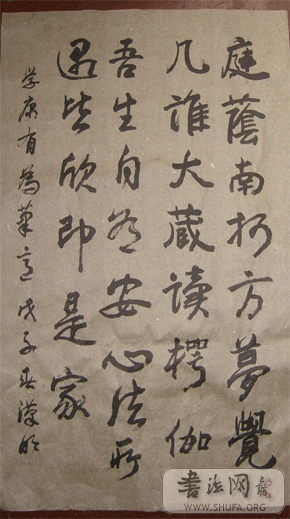 庭蔭南柯方夢覺
几誰大藏讀楞伽
吾生自有安心法所
遇皆欣即是家
学康有為筆意 戊子春漢明
書法网
WWW.SHUFA.ORG